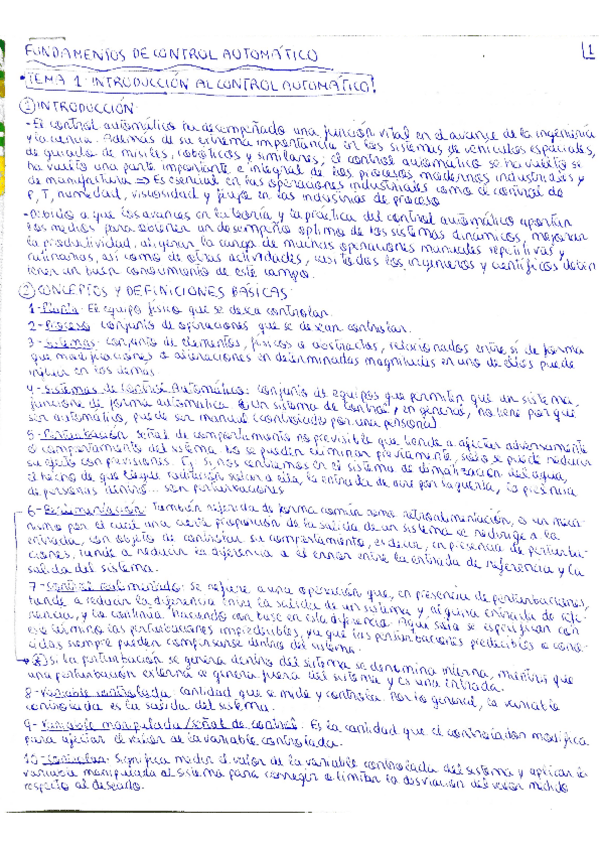 FUNDAMENTOS DE CONTROL AUTOMÁTICO
1
• TEMA 1: INTRODUCCIÓN AL CONTROL AUTOMÁTICO
① INTRODUCCIÓN:
- El control automático ha desempeñado una función vital en el avance de la ingeniería
y la ciencia. Además de su extrema importancia en los sistemas de vehículos espaciales,
de guiado de misiles, robóticos y similares; el control automático se ha vuelto se
ha vuelto una parte importante e integral de los procesos modernos industriales y
de manufactura. ⇒ Es esencial en las operaciones industriales como el control de
P, T, humedad, viscosidad y flujo en las industrias de proceso
- Debido a que los avances en la teoría y la práctica del control automático aportan
los medios para obtener un desempeño óptimo de los sistemas dinámicos, mejorar
la productividad, aligerar la carga de muchas operaciones manuales repetitivas y
rutinarias, así como de otras actividades, casi todos los ingenieros y científicos deben
tener un buen conocimiento de este campo.
② CONCEPTOS Y DEFINICIONES BÁSICAS:
1- Planta: El equipo físico que se desea controlar.
2- Proceso: conjunto de operaciones que se desean controlar.
3- Sistemas: conjunto de elementos, físicos o abstractos, relacionados entre sí de forma
que modificaciones o alteraciones en determinadas magnitudes en uno de ellos puede
influir en los demás
4- Sistemas de Control Automático: conjunto de equipos que permiten que un sistema
funcione de forma automática. Un sistema de control, en general, no tiene por qué
ser automático, puede ser manual (controlado por una persona)
5- Perturbación: Señal de comportamiento no previsible que tiende a afectar adversamente
el comportamiento del sistema. No se pueden eliminar previamente, sólo se puede reducir
su efecto con previsiones. Ej: si nos centramos en el sistema de climatización del agua,
el hecho de que llegue radiación solar a ella, la entrada de aire por la puerta, la presencia
de personas dentro... son perturbaciones
6- Realimentación: También referida de forma común como retroalimentación, es un meca-
nismo por el cual una cierta proporción de la salida de un sistema se redirige a la
entrada, con objeto de controlar su comportamiento, es decir, en presencia de perturba-
ciones, tiende a reducir la diferencia o el error entre la entrada de referencia y la
salida del sistema.
7- Control realimentado: Se refiere a una operación que, en presencia de perturbaciones,
tiende a reducir la diferencia entre la salida de un sistema y alguna entrada de refe-
rencia, y la continúa haciendo con base en esta diferencia. Aquí solo se especifican con
ese término las perturbaciones impredecibles, ya que las perturbaciones predecibles o cono-
cidas siempre pueden compensarse dentro del sistema.
Si la perturbación se genera dentro del sistema se denomina interna, mientras que
una perturbación externa se genera fuera del sistema y es una entrada.
8- Variable controlada: cantidad que se mide y controla. Por lo general, la variable
controlada es la salida del sistema.
9- Variable manipulada/señal de control: Es la cantidad que el controlador modifica
para afectar el valor de la variable controlada.
10- Controlar: Significa medir el valor de la variable controlada del sistema y aplicar la
variable manipulada al sistema para corregir o limitar la desviación del valor medido
respecto al deseado.